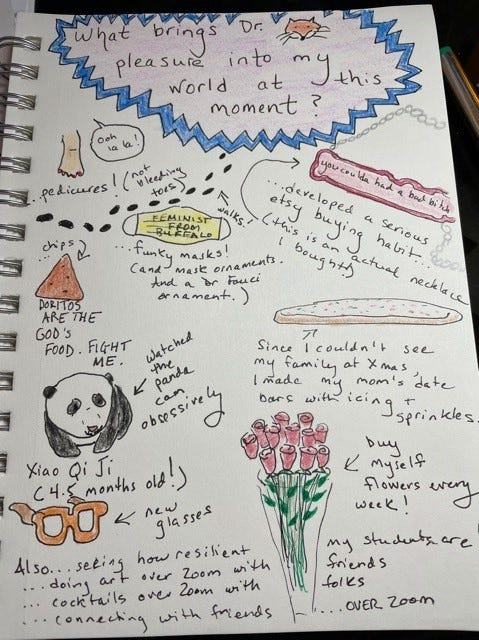 What brings Dr.
pleasure into my
world at this
moment?
Ooh
la la!
...pedicures! (not
bleeding
toes)
walks.
you coulda had a bad bitch
...developed a serious
etsy buying habit...
(this is an actual necklace
I bought)
FEMINIST
FROM
BUFFALO
...funky masks!
(and mask ornaments.
And a Dr Fauci
ornament.)
chips
DORITOS
ARE THE
GOD'S
FOOD. FIGHT
ME.
Since I couldn't see
my family at Xmas,
I made my mom's date
bars with icing +
sprinkles.
watched
the
panda
cam
obsessively
Xiao Qi Ji
(4.5 months old!)
buy
myself
flowers every
week!
new
glasses
Also... seeing how resilient my students are
... doing art over Zoom with friends
... cocktails over Zoom with folks
... connecting with friends ....OVER ZOOM